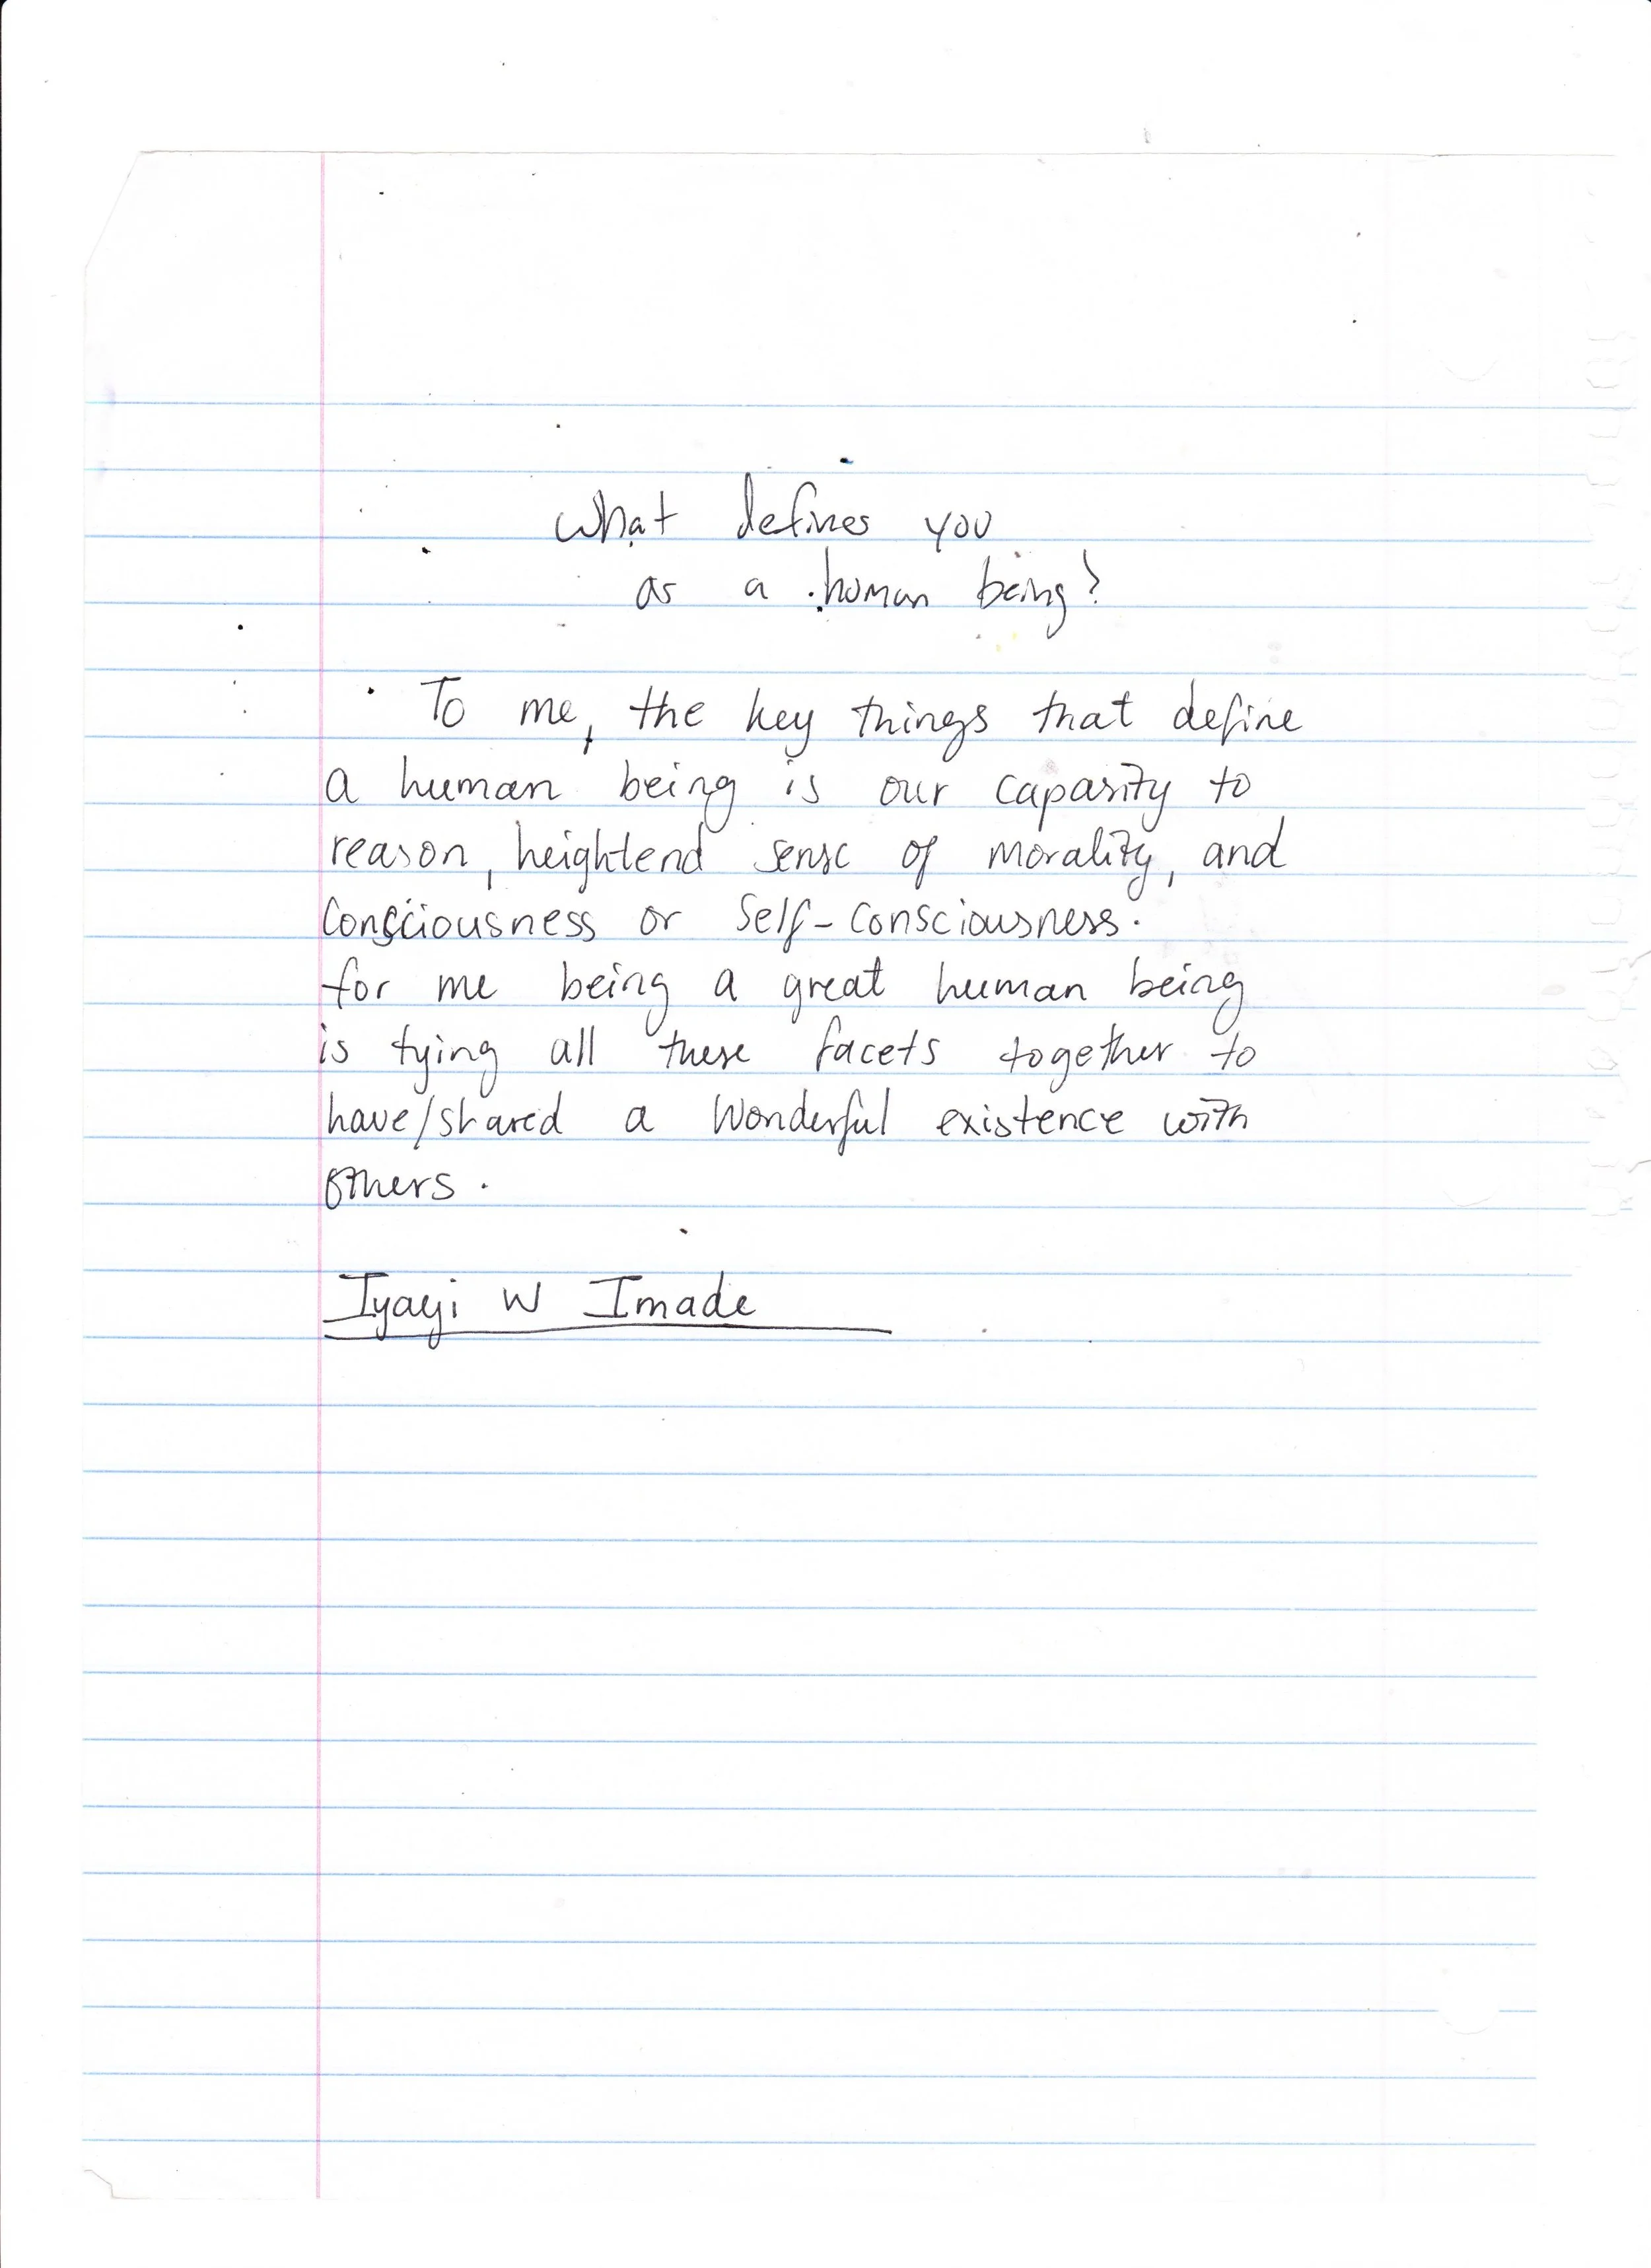 What defines you
as a human being?
To me, the key things that define
a human being is our capasity to
reason, heightend sense of morality, and
Consciousness or Self-Consciousness.
for me being a great human being
is tying all these facets together to
have/shared a Wonderful existence with
others.
Iyayi W Imade